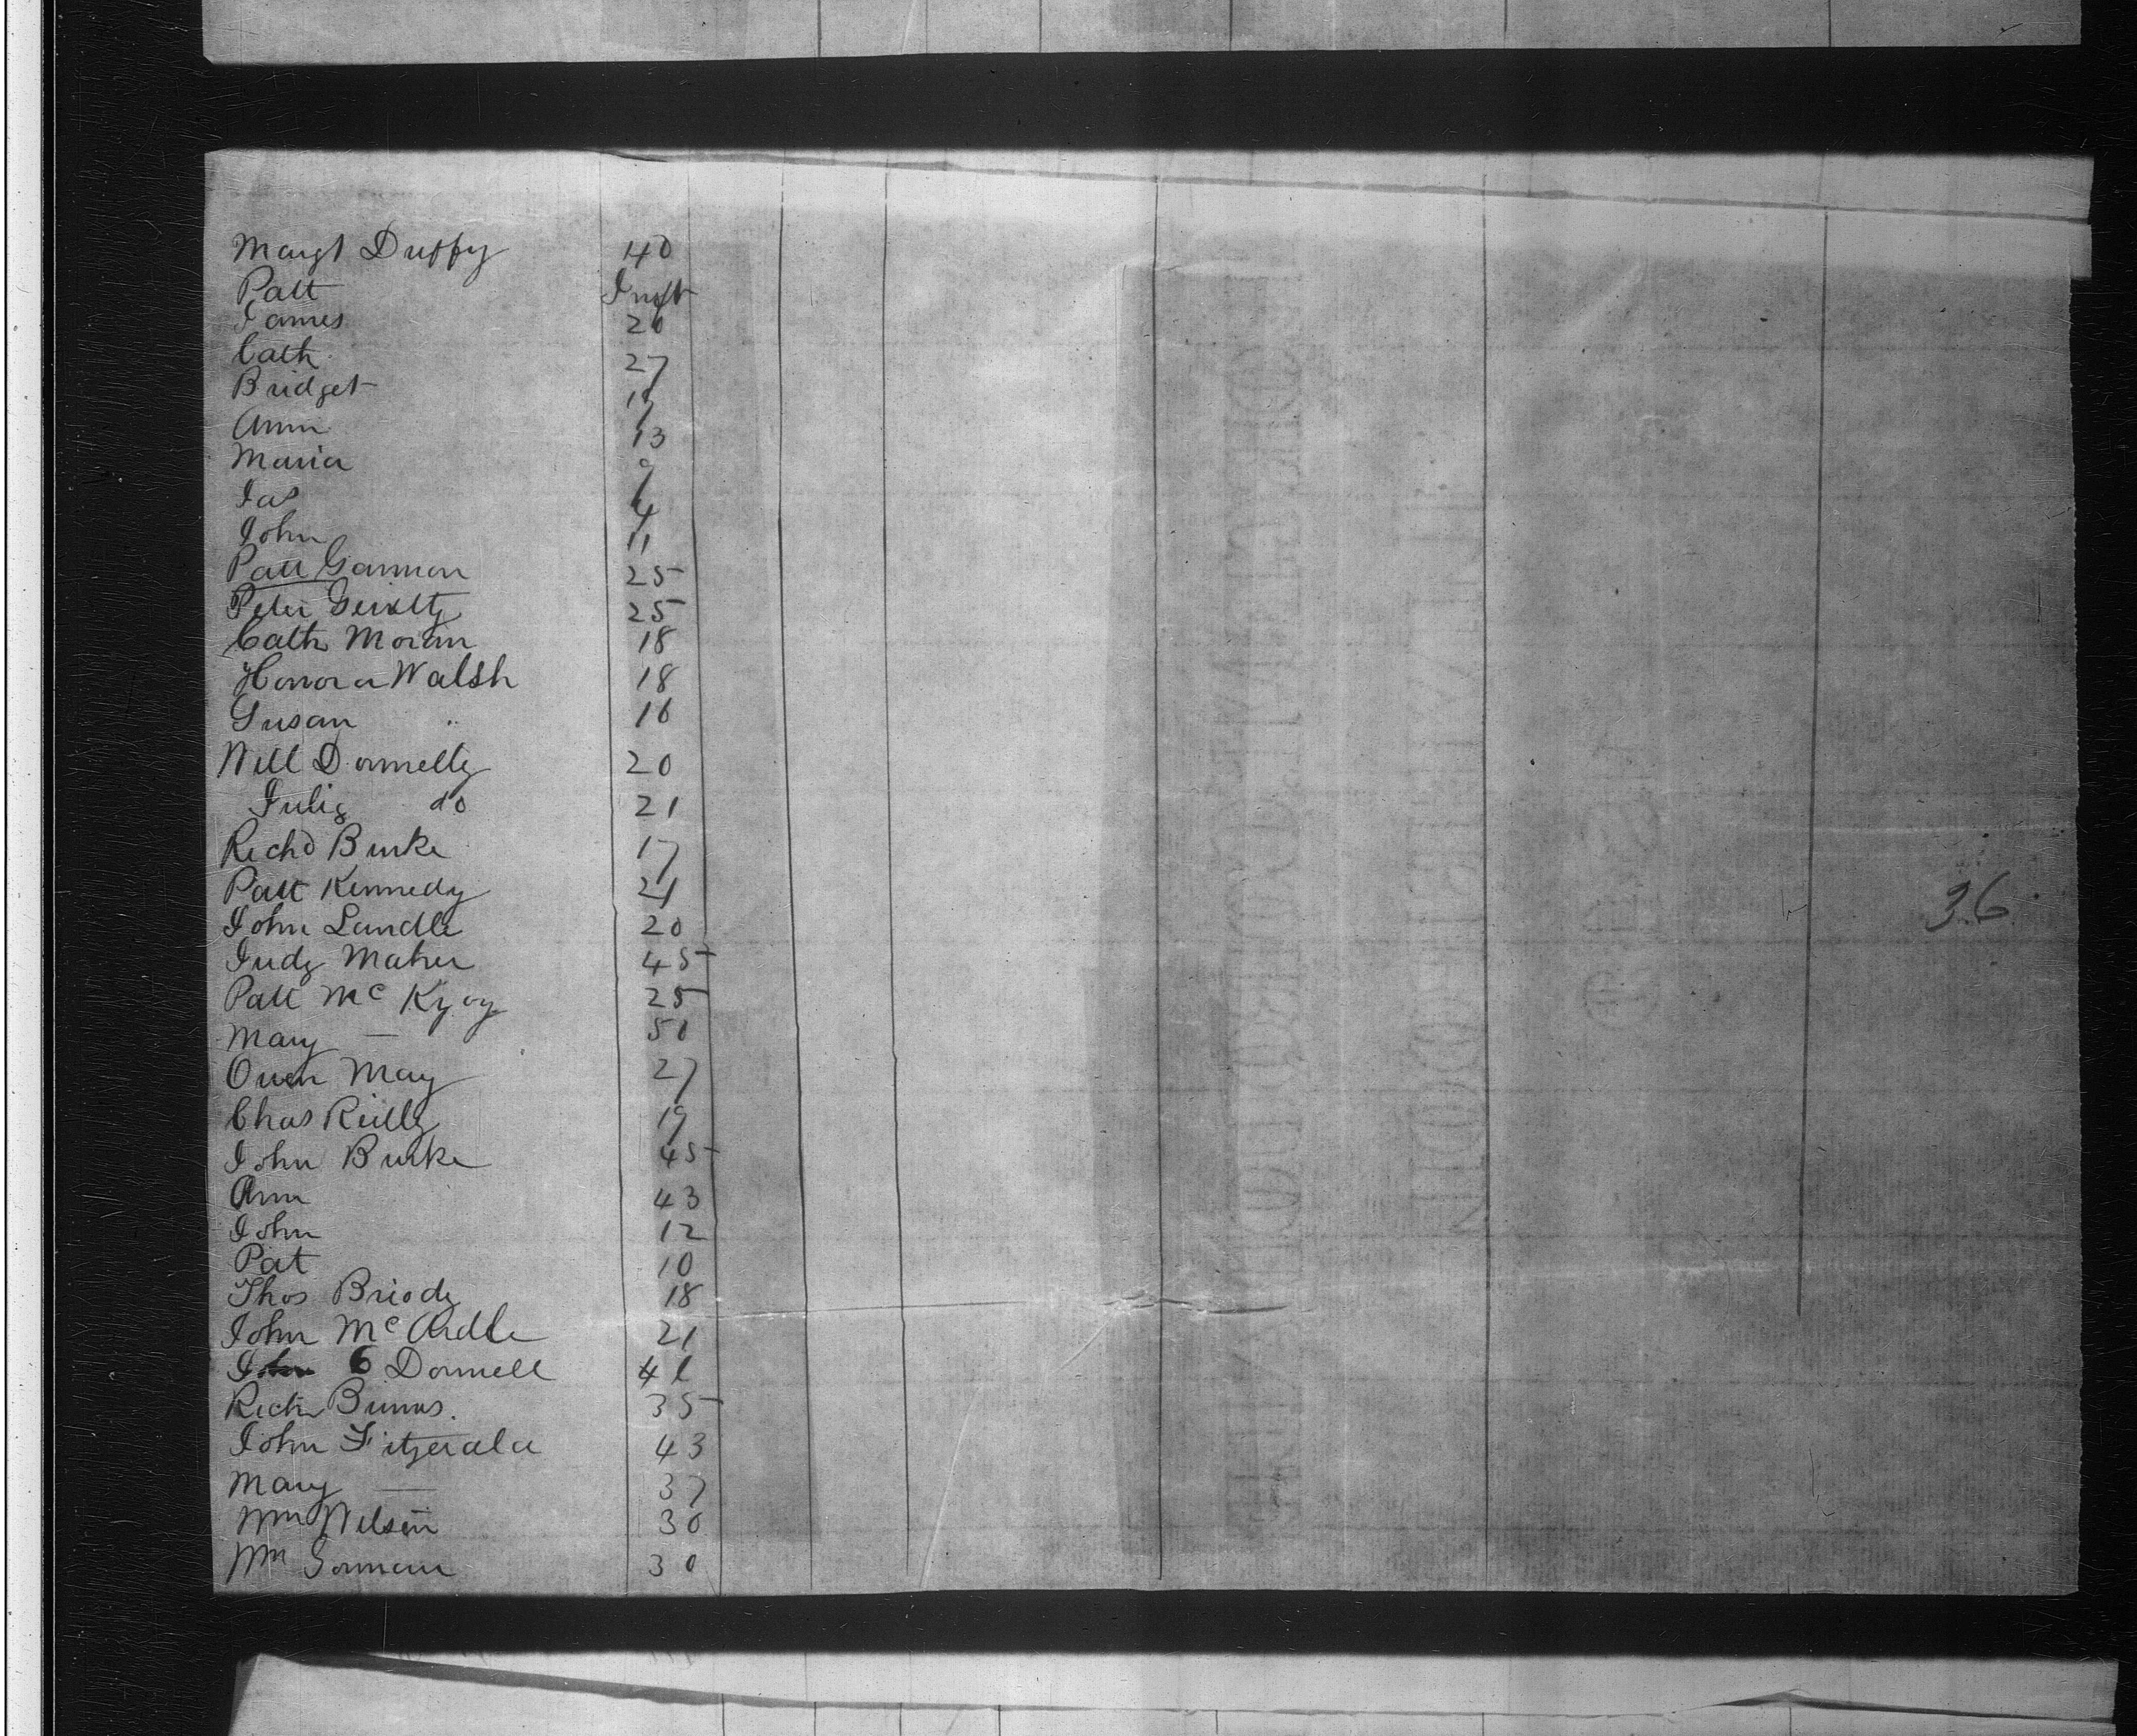 Margt Duffy 40
Patt Inft
James 20
Cath 27
Bridget 17
Ann 13
Maria 9
Jas 4
John 11
Patt Gannon 25
Peter 25
Cath Moran 18
Honora Walsh 18
Susan " 16
Will Donnelly 20
July do 21
Richd Burke 17
Patt Kennedy 21
John 20
Judy Maher 45
Patt Mc 25
Mary — 50
Owen May 27
Chas Reilly 19
John Burke 45
Ann 43
John 12
Pat 10
Thos Briody 18
John Mc Ardle 21
John O Donnell 41
Rich 35
John Fitzgerald 43
Mary — 37
Wm Wilson 30
Wm Gorman 30
36